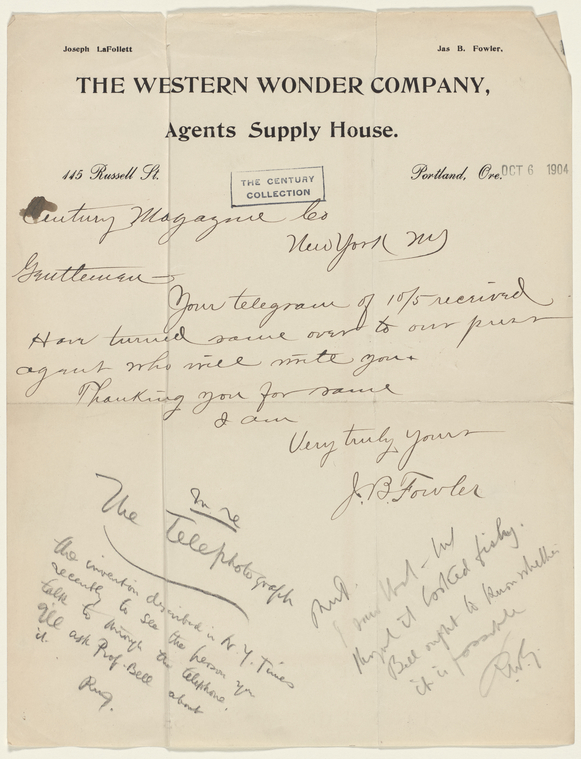 Joseph LaFollett
Jas B. Fowler,
THE WESTERN WONDER COMPANY,
Agents Supply House.
445 Russell St.
Portland, Ore.
OCT 6 1904
THE CENTURY
COLLECTION
Century Magazine Co
New York NY
Gentlemen
Your telegram of 10/5 received
Have turned same over to our press
agent who will write you.
Thanking you for same
I am
Very truly yours
J. B. Fowler
In re
The Telephotograph
the invention described in N.Y. Times
recently to see the person you
talk to through the telephone.
I'll ask Prof. Bell about
it.
thought it looked fishy.
Bell ought to know whether
it is possible